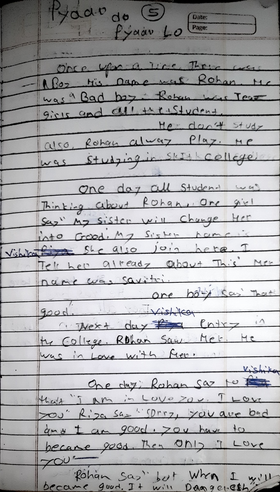 Pyaao do
Pyaao Lo
5
Date:
Page:
Once upon a time There was
A Boy His name was Rohan. He
was "Bad boy" Rohan was Teas
girls and all the Student.
He don't study
also, Rohan alway Play. He
was Studying in College.
One day all Student was
Thinking about Rohan. One girl
Say" My sister will change Her
into Good! My Sister name is
Vishika She also join here. I
Tell her already about This" Her
name was Savitri.
One boy say That
good.
Vishika
Next day Entry in
the College. Rohan Saw Her. He
was in Love with Her.
One day. Rohan say to Vishika
that "I Am in Love you. I Love
you" Riza say "Sorry, you are bad
and I am good. you have to
became good. Then Only I Love
you"
Rohan Say" but When I will
became good. It will